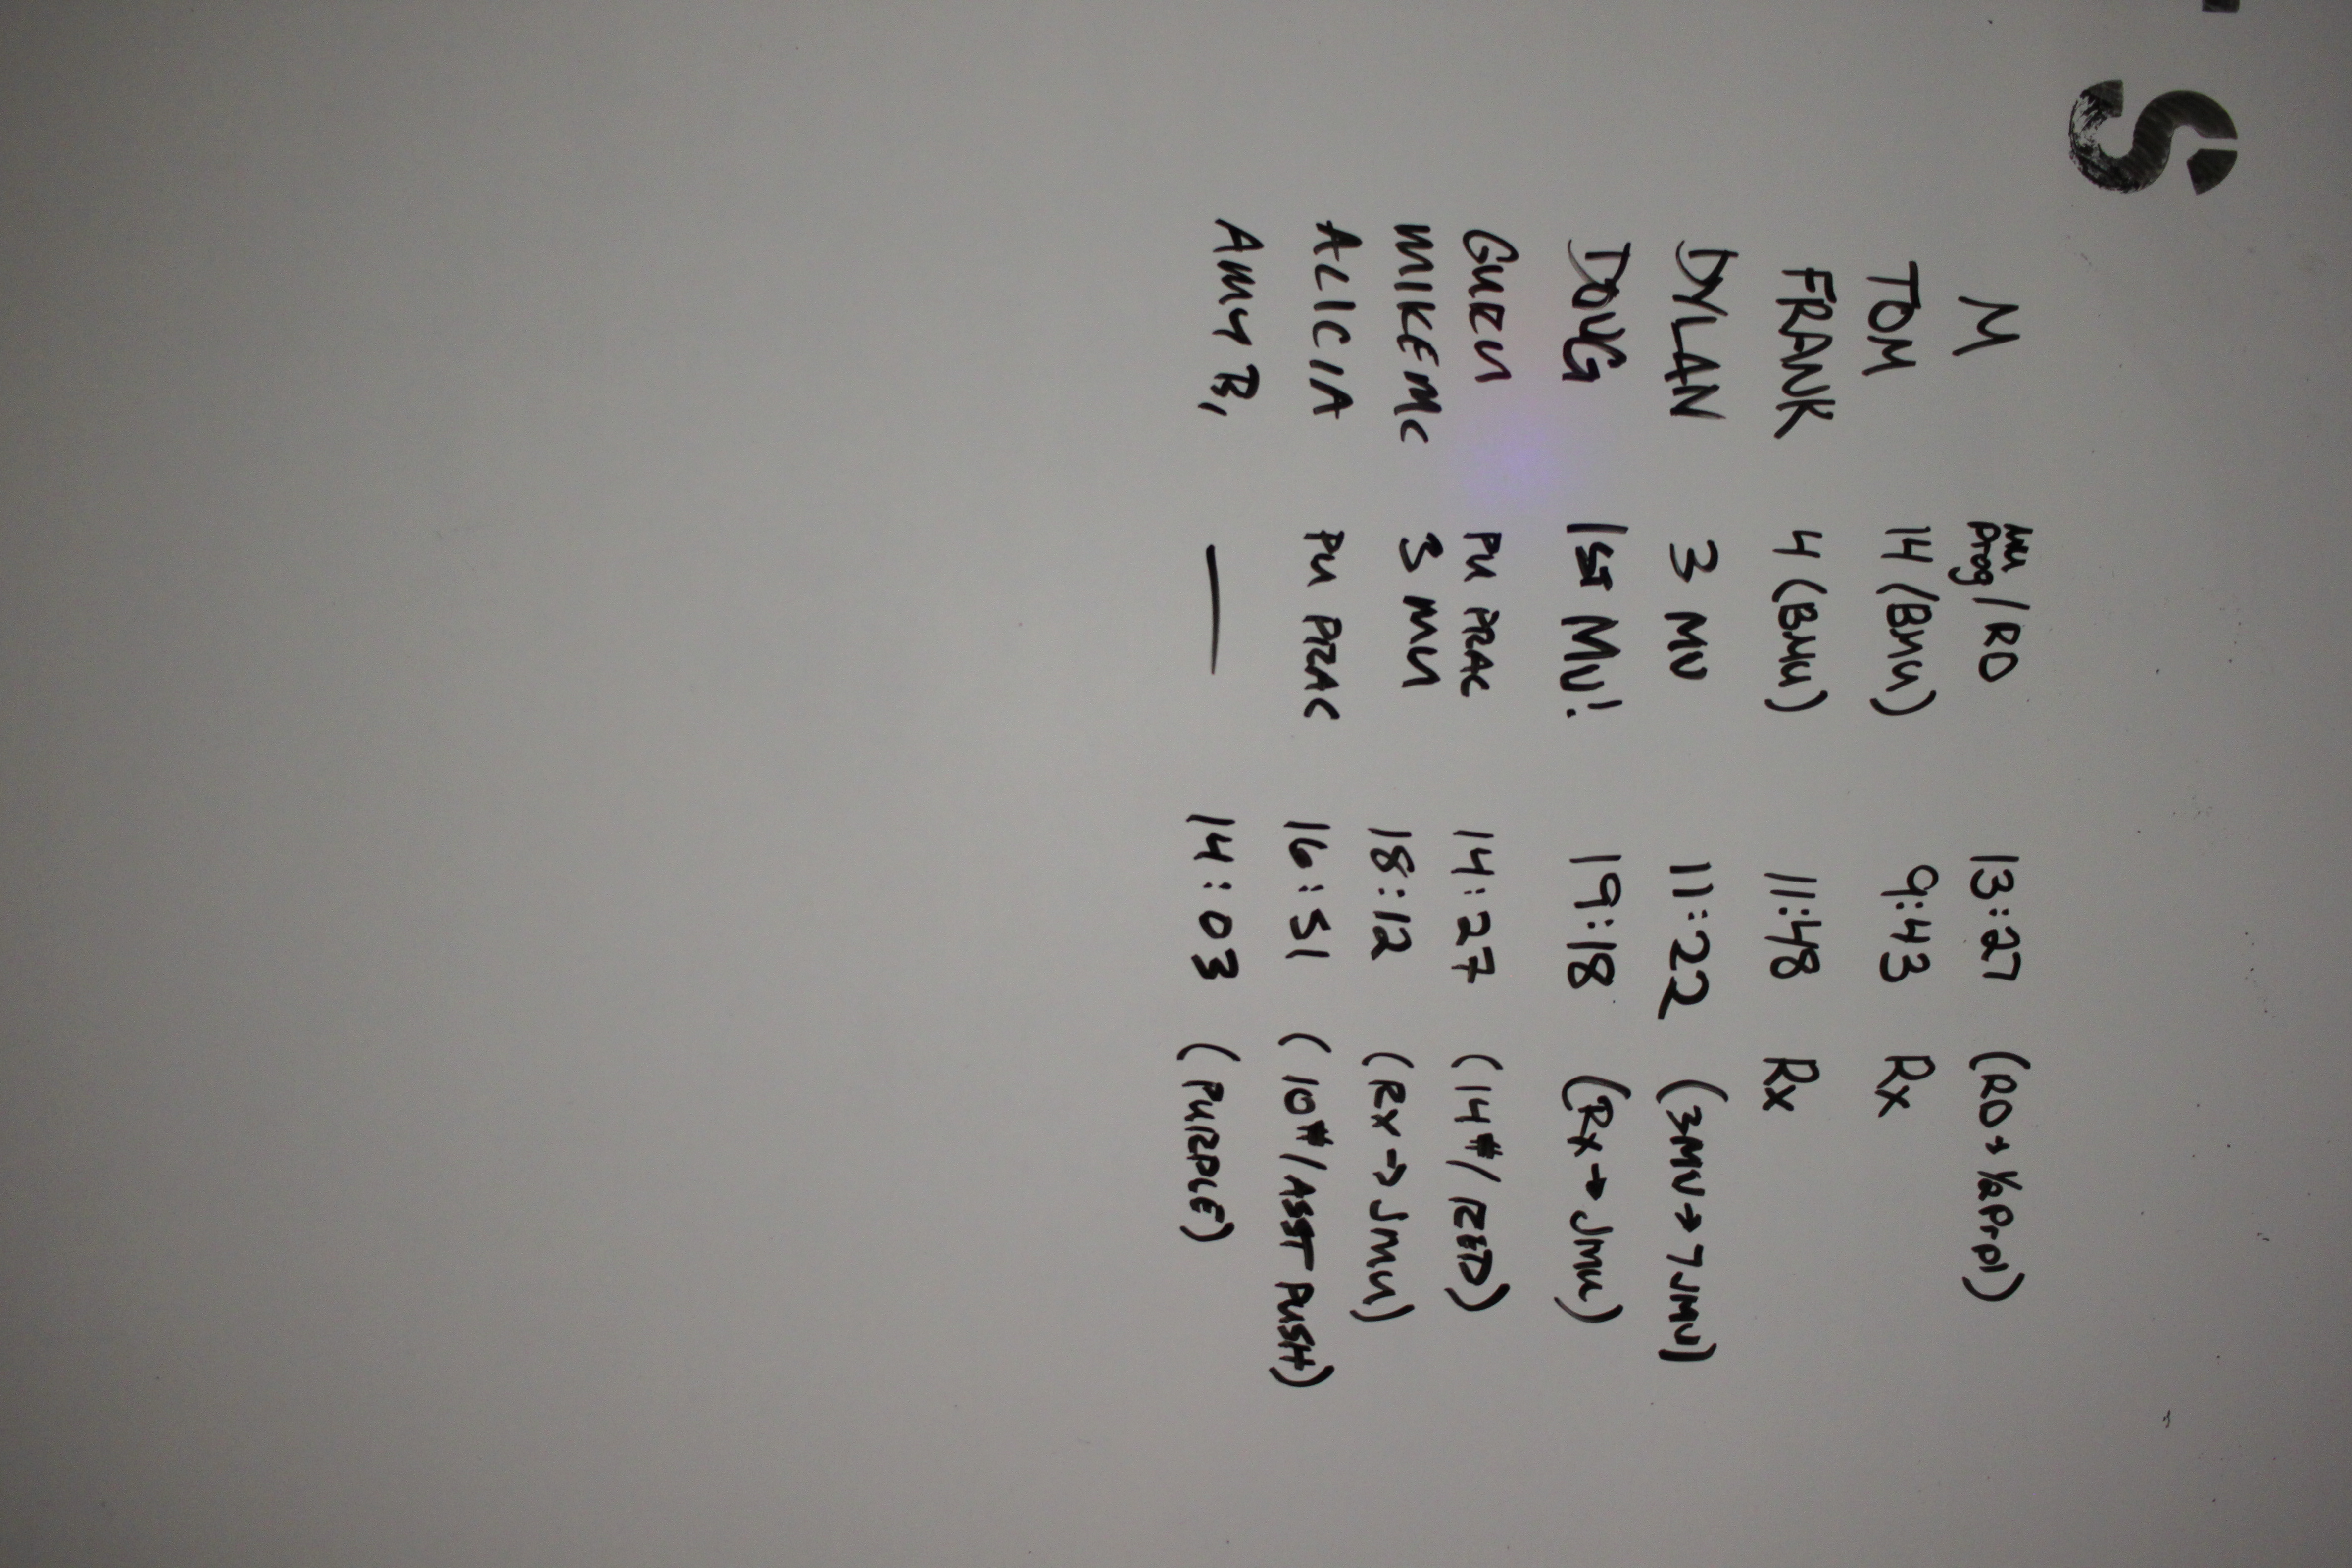 S
M MU Prog/RD 13:27 (RD + 1/2 Prpl)
TOM 14 (BMU) 9:43 Rx
FRANK 4 (BMU) 11:48 Rx
DYLAN 3 MU 11:22 (3MU→7JMU)
DOUG 1ST MU! 19:18 (Rx→JMU)
GURU PU PRAC 14:27 (14#/RED)
MIKE MC 3 MU 18:12 (Rx→JMU)
ALICIA PU PRAC 16:51 (10#/ASST PUSH)
AMY B. — 14:03 (PURPLE)